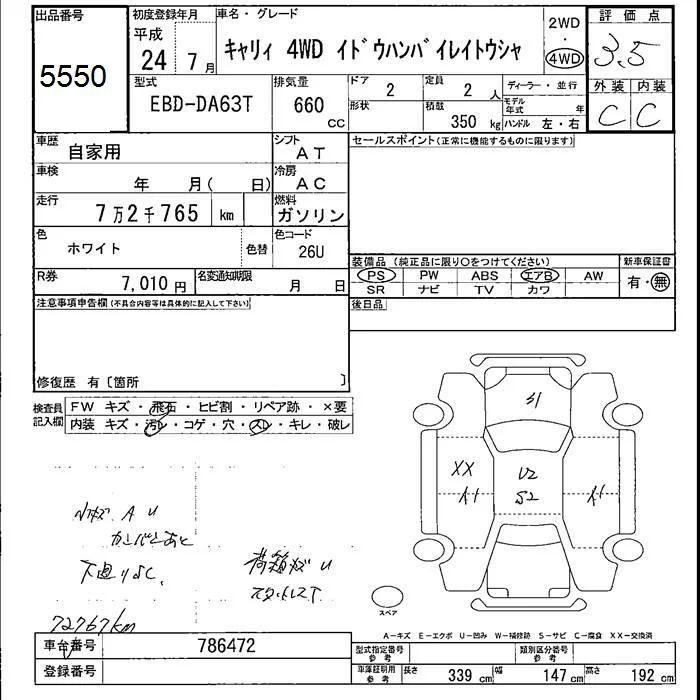 出品番号 初度登録年月 車名・グレード 2WD 評価点
平成
5550 24 7月 キャリィ 4WD イドウハンバイレイトウシャ 4WD 3.5
型式 排気量 ドア 定員 ディーラー・並行 外装 内装
EBD-DA63T 660 CC 2 2人
形状 積載 350 kg モデル年式 年 ハンドル 左・右 C C
車歴 自家用 シフト AT セールスポイント(正常に機能するものに限ります)
車検 年 月( 日) 冷房 AC
走行 7万2千765 km 燃料 ガソリン
色 ホワイト 色替 色コード 26U
装備品(純正品に限り○をつけてください) 新車保証書
R券 7,010円 名変通知期限 月 日 PS PW ABS エアB AW 有・無
SR ナビ TV カワ
注意事項申告欄(不具合内容等は具体的に記入して下さい) 後日品
修復歴 有〔箇所 〕
検査員記入欄 FW キズ・飛石・ヒビ割・リペア跡・×要
内装 キズ・汚レ・コゲ・穴・スレ・キレ・破レ
S1
XX A1 U2 S2 A1
A U
下廻りSC
荷箱キズ U
72767km
スペア
A-キズ E-エクボ U-凹み W-補修跡 S-サビ C-腐食 XX-交換済
車台番号 786472 型式指定番号 参考 類別区分番号 参考
登録番号 車庫証明用 参考 長さ 339cm 幅 147cm 高さ 192cm